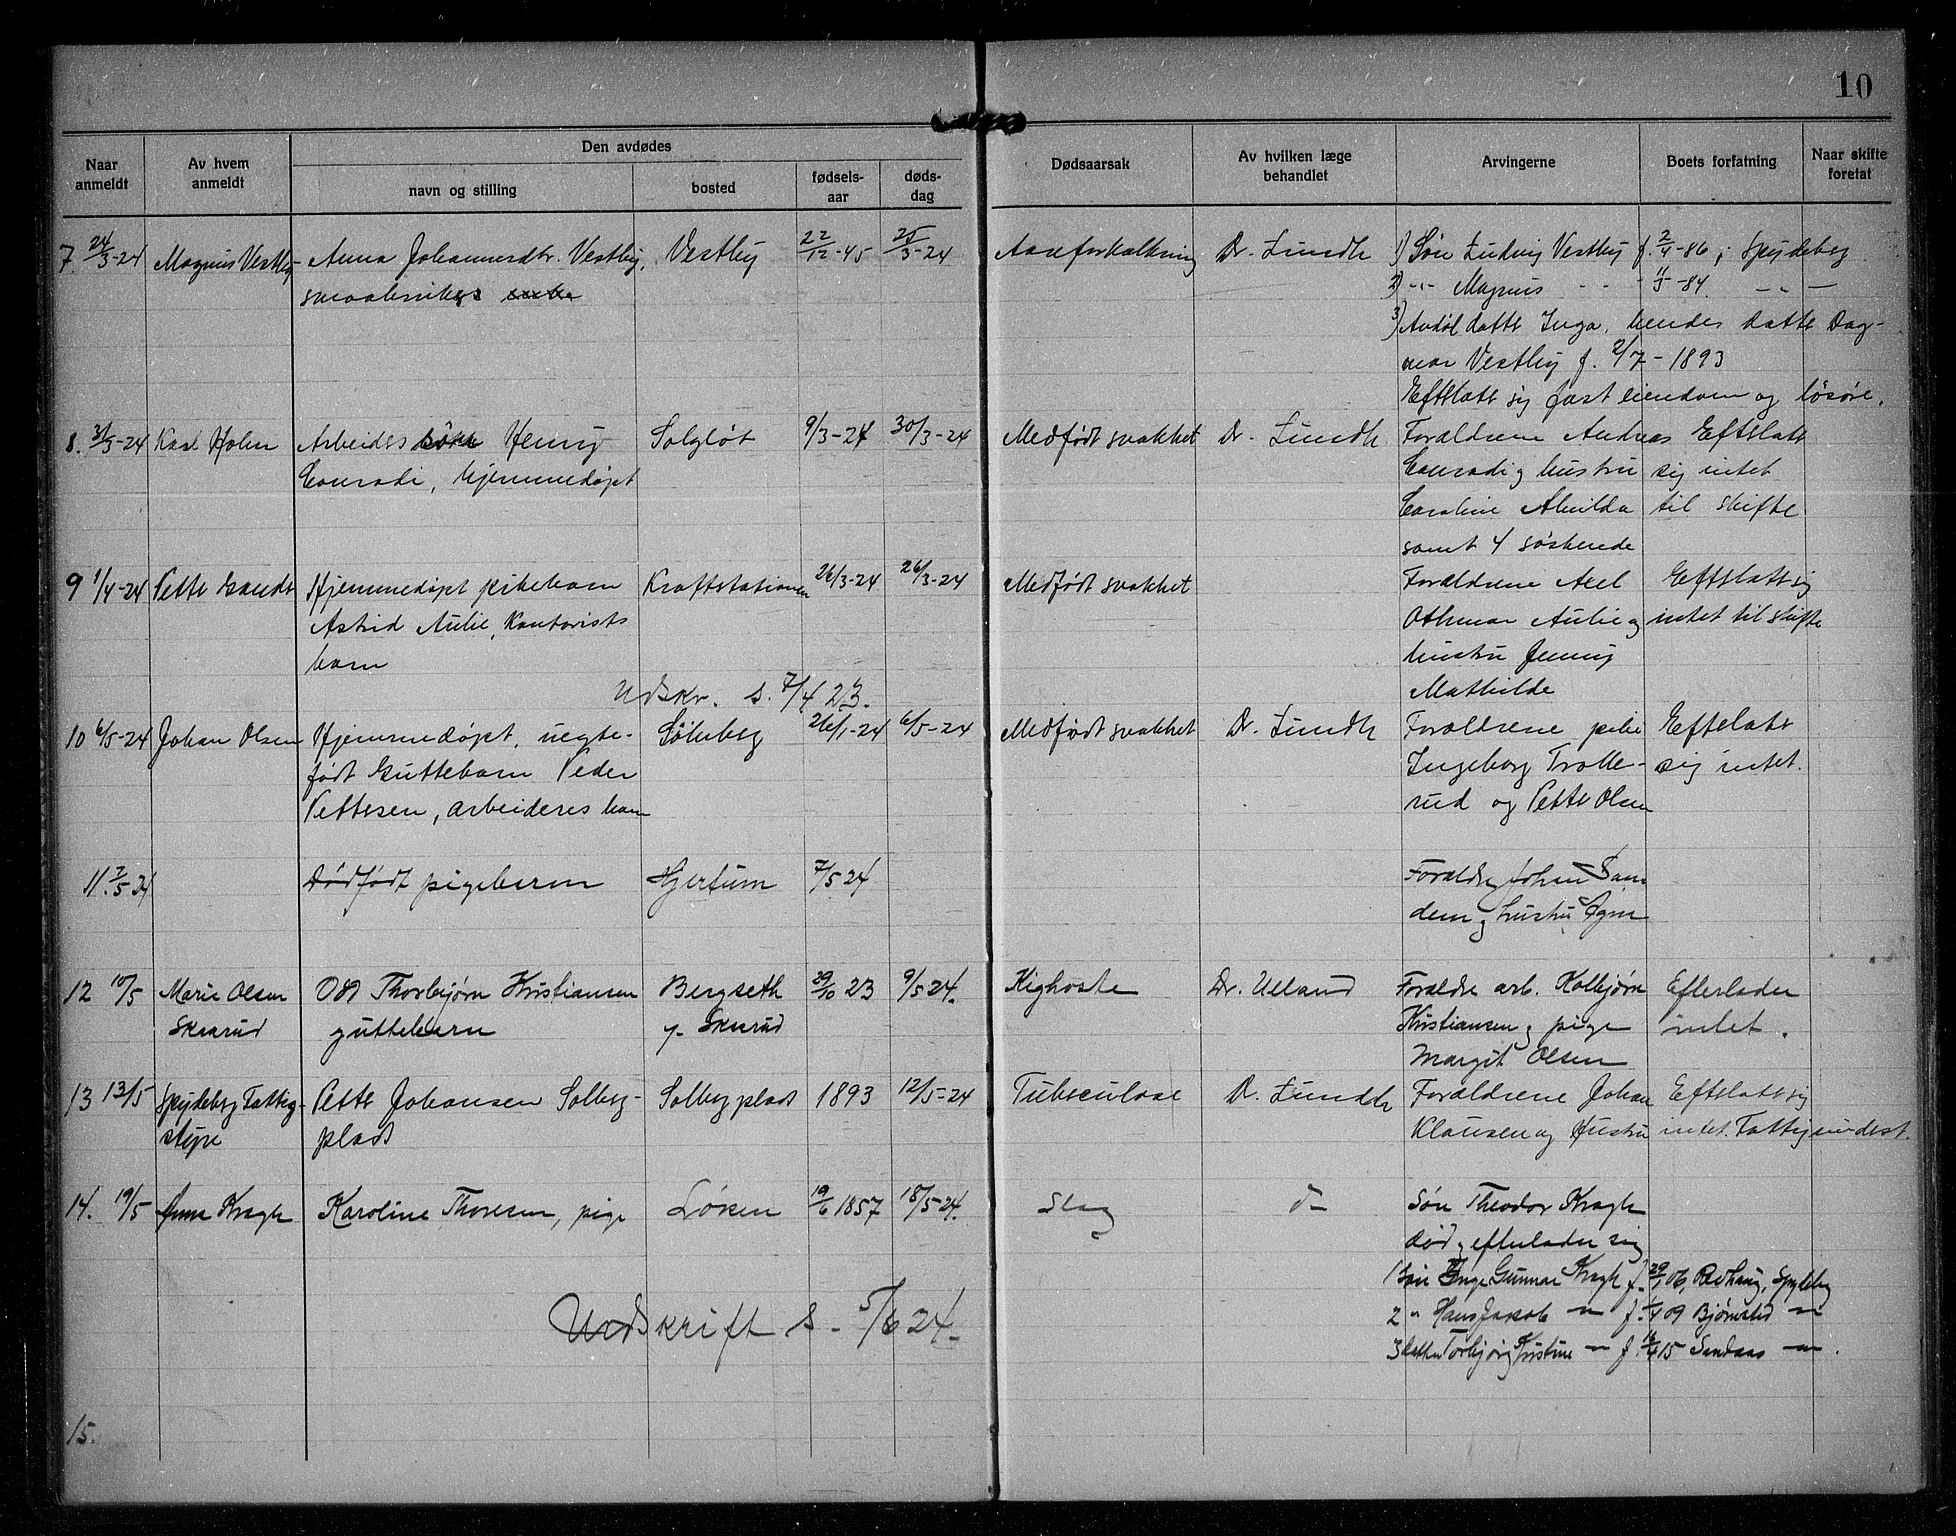 10
Naar anmeldt
Av hvem anmeldt
Den avdødes
navn og stilling
bosted
fødsels-aar
døds-dag
Dødsaarsak
Av hvilken læge behandlet
Arvingerne
Boets forfatning
Naar skifte foretat
7. 24/3-24 Magnus Vestby Anna Johannesdtr. Vestby, Vestby 22/12-45 /3-24 Aareforkalkning Dr. Lundh 1) Søn Ludvig Vestby f. 2/4-86, Spydeberg
smaabrukers 2) -"- Magnus - - - 11/5-84. -"-
3) Avdøl datte Inga, hendes datte Dag-
mar Vestby f. 2/7-1893
Eftelatt sig fast eiendom og løsøre.
8. 31/3-24 Karl Holen Arbeides sønn Henry Solgløt 9/3-24 30/3-24 Medfødt svakhet Dr. Lundh Forældrene Andreas Eftelatt
Conradi, hjemmedøpt Conradi og hustru sig intet
Caroline Alvilda til skifte
samt 4 søskende
9 1/4-24 Pette Hjemmedøpt pikebarn Kraftstationen 26/3-24 26/3-24 Medfødt svakhet Forældrene Axel Eftelatt sig
Astrid Aulie, Kontorists Othmar Aulie og intet til skifte
barn hustru Jenny
Udskr. s. 7/4 23. Mathilde
10 6/5-24 Johan Olsen Hjemmedøpt, uegte- Søleberg 26/1-24 6/5-24 Medfødt svakhet Dr. Lundh Forældrene pike Eftelatt
født Guttebarn Peder Ingeborg Trolle- sig intet.
Pettesen, arbeideres barn rud og Pette Olsen
11. 7/5 24 Dødfødt pigebarn Hjertum 7/5-24 Forældre Johan San
dem og hustru Agnes
12 10/5 Marie Olsen Odd Thorbjørn Kristiansen Bergseth 29/10 23 9/5 24. Kighoste Dr. Ulland Forældre arb. Kolbjørn Efterlader
Skarud guttebarn Skarud Kristiansen og pige intet.
Margit Olsen
13 13/5 Spydeberg Fattig- Pette Johansen Solberg- Solberg plads 1893 12/5-24 Tuberculose D. Lundh Forældrene Johan Eftelatt sig
styre plads Klausen og Hustru intet. Fattigundest.
14. 19/5 Anna Kragh Karoline Thoresen, pige Løken 19/6 1857 18/5-24. Slag Søn Theodor Kragh
død og efterlader sig
1 Søn Inge Gunnar Kragh f. 29/1 06, Rødhaug, Spydeberg
Udskrift s. 5/6 24. 2 " Hans Jakob - f. 1/4 09 Bjørnstad -
3 datter Torbjørg Kristine - f. 15 Sandaas -.
15.